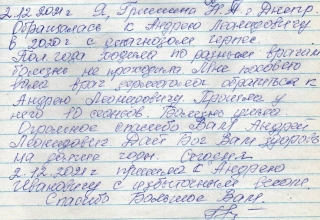 2.12.2021г Я, Гришина Н.А. г. Днепр.
Обращалась к Андрею Леонидовичу
в 2020г с диагнозом герпес.
Пол года ходила по разным врачам
болезнь не проходила. Мне
врач обратиться к
Андрею Леонидовичу. Прошла у
него 10 сеансов. Болезнь ушла
Огромное спасибо Вам Андрей
Леонидович Дай Бог Вам здоровья
на долгие годы.
2.12.2021г пришла к Андрею
Ивановичу с
Спасибо Большое Вам.